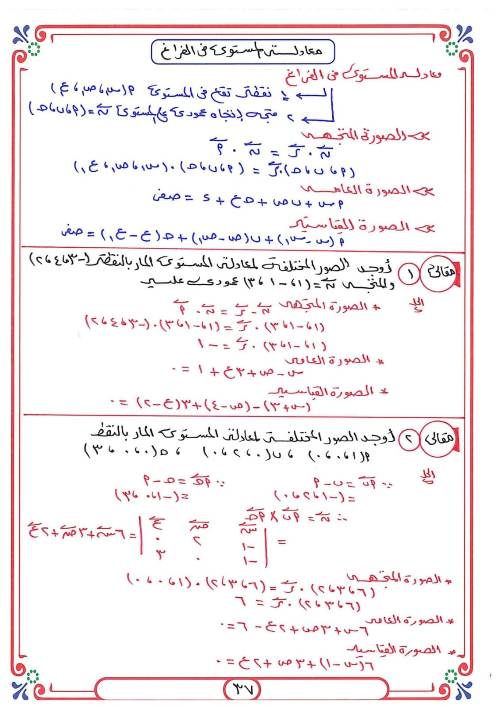 معادلة المستوى فى الفراغ
معادلة المستوى فى الفراغ
١ نقطة تقع فى المستوى P(س١، ص١، ع١)
٢ متجه إتجاه عمودى على المستوى ن = (P، ب، حـ)
>> الصورة المتجهة
ن . ر = ن . P
(P، ب، حـ) . ر = (P، ب، حـ) . (س١، ص١، ع١)
>> الصورة العامة
P س + ب ص + حـ ع + د = صفر
>> الصورة القياسية
P (س - س١) + ب (ص - ص١) + حـ (ع - ع١) = صفر
مثال ١ أوجد الصور المختلفة لمعادلة المستوى المار بالنقطة (-٣، ٤، ٢)
والمتجه ن = (١، -١، ٣) عمودى عليه
الحل
* الصورة المتجهة
ن . ر = ن . P
(١، -١، ٣) . ر = (١، -١، ٣) . (-٣، ٤، ٢)
(١، -١، ٣) . ر = -١
* الصورة العامة
س - ص + ٣ع + ١ = ٠
* الصورة القياسية
(س + ٣) - (ص - ٤) + ٣(ع - ٢) = ٠
مثال ٢ أوجد الصور المختلفة لمعادلة المستوى المار بالنقط
P(١، ٠، ٠) ، ب(٠، ٢، ٠) ، حـ(٠، ٠، ٣)
الحل
∵ Pب = ب - P ∵ Pحـ = حـ - P
= (-١، ٢، ٠) = (-١، ٠، ٣)
∴ ن = Pب × Pحـ
س ص ع
= -١ ٢ ٠ = ٦س + ٣ص + ٢ع
-١ ٠ ٣
* الصورة المتجهة
(٦، ٣، ٢) . ر = (٦، ٣، ٢) . (١، ٠، ٠)
(٦، ٣، ٢) . ر = ٦
* الصورة العامة
٦س + ٣ص + ٢ع - ٦ = ٠
* الصورة القياسية
٦(س - ١) + ٣ص + ٢ع = ٠
٣٧